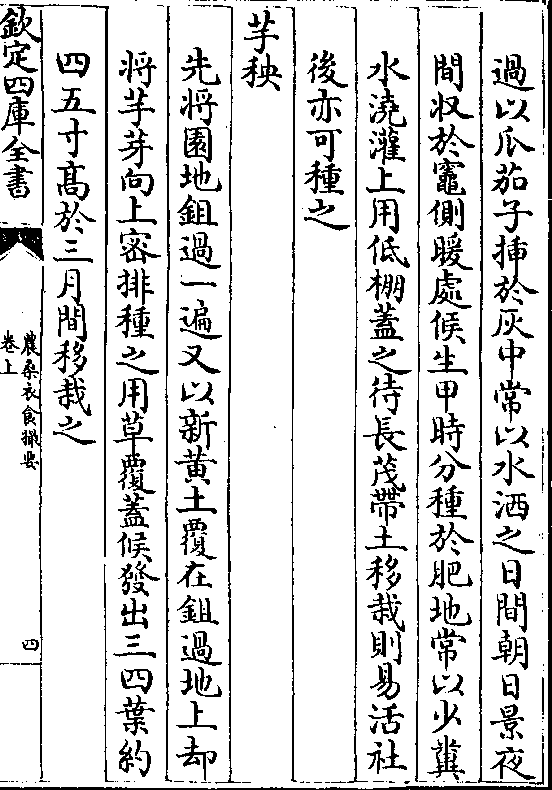 過以瓜茄子揷於灰中常以水洒之日間朝日景夜
間収於竈側暖處候生甲時分種於肥地常以少糞
水澆灌上用低棚蓋之待長茂帶土移栽則易活社
後亦可種之
芋秧
先將園地鉏過一遍又以新黄土覆在鉏過地上却
將芋芽向上宻排種之用草覆蓋候發出三四葉約
四五寸髙於三月間移栽之
欽定四庫全書
農桑衣食撮要
卷上
四